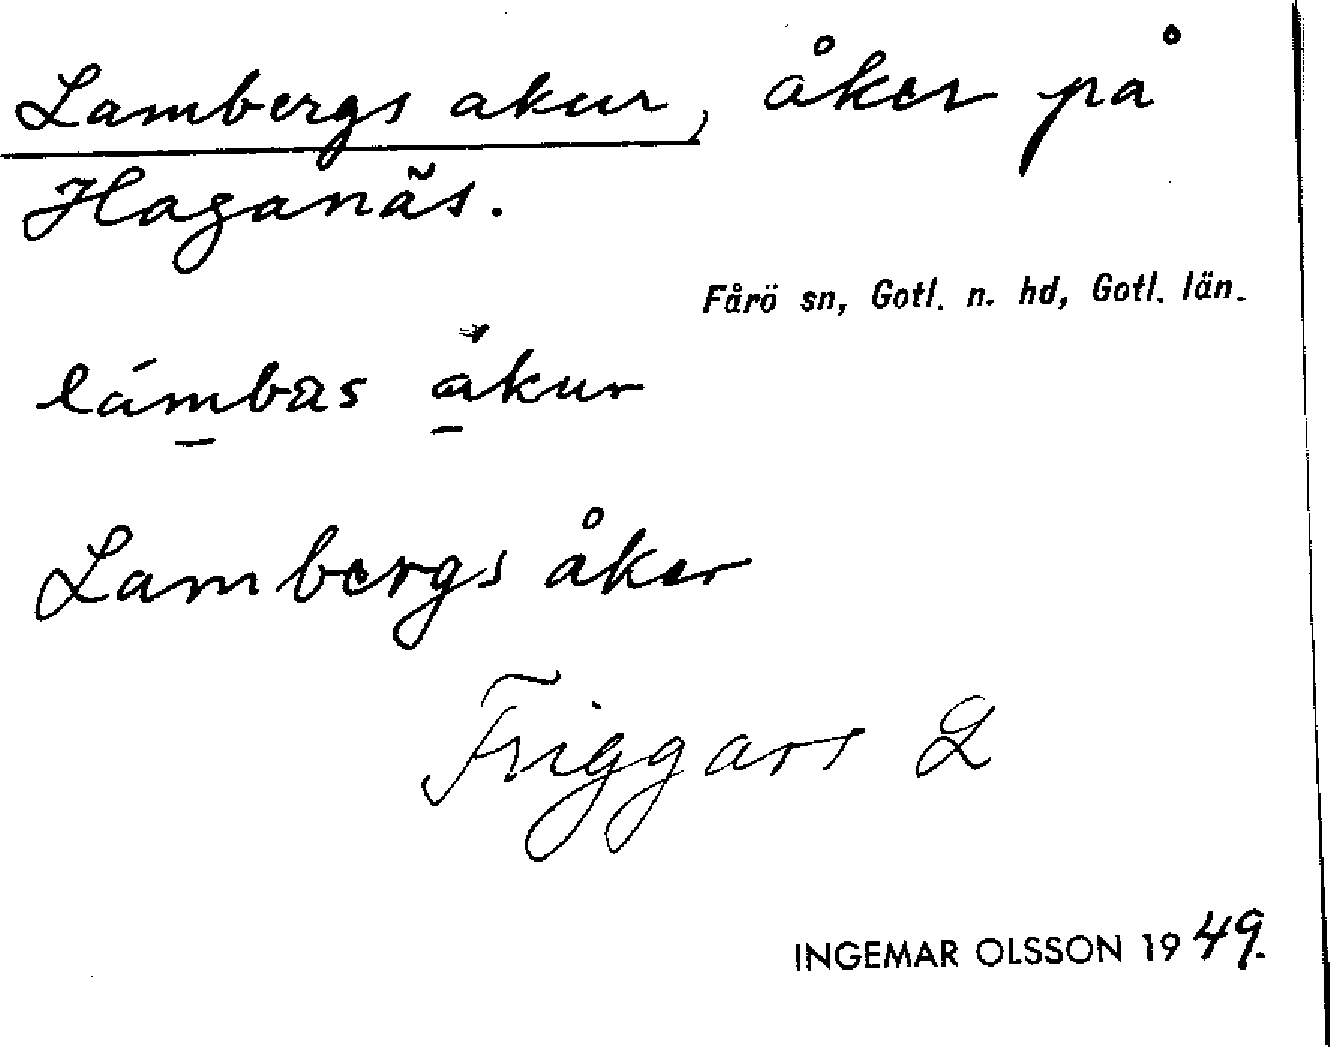 Lambergs akur, åker på
Haganäs.
Fårö sn, Gotl. n. hd, Gotl. län.
lámbas åkur
Lambergs åker
Friggars L
INGEMAR OLSSON 1949.